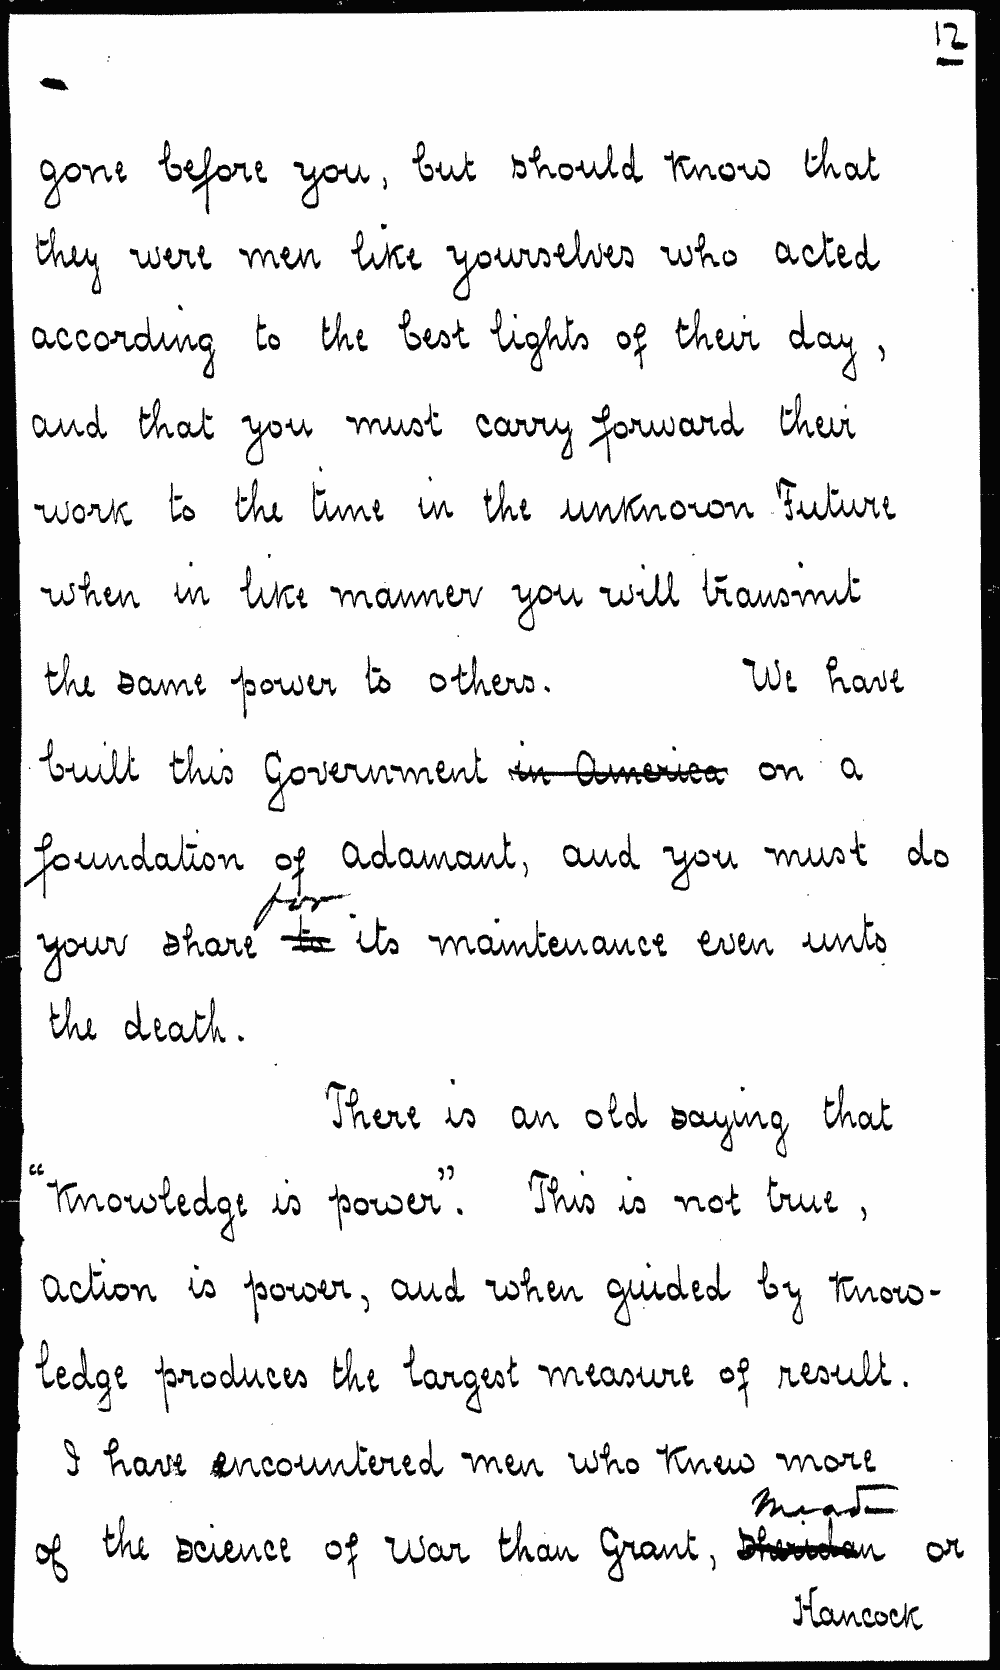 12
gone before you, but should know that
they were men like yourselves who acted
according to the best lights of their day,
and that you must carry forward their
work to the time in the unknown Future
when in like manner you will transmit
the same power to others. We have
built this Government in America on a
foundation of adamant, and you must do
for
your share to its maintenance even unto
the death.
There is an old saying that
“Knowledge is power”. This is not true,
action is power, and when guided by Know-
ledge produces the largest measure of result.
I have encountered men who Knew more
Meade
of the science of War than Grant, Sheridan or
Hancock